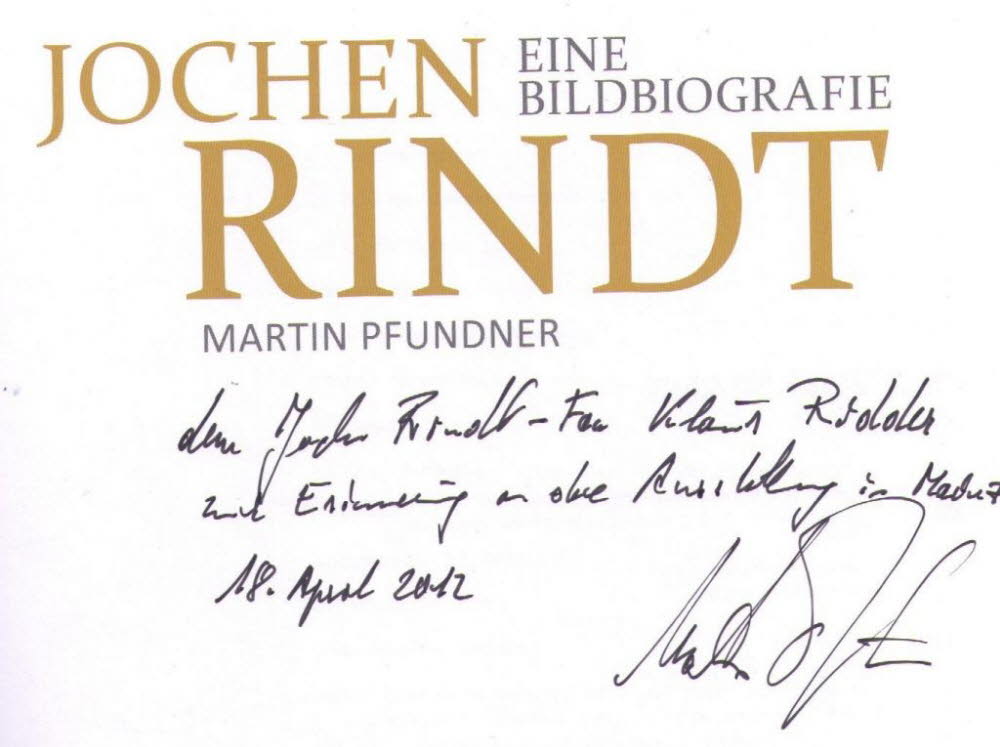 JOCHEN EINE
BILDBIOGRAFIE
RINDT
MARTIN PFUNDNER
dem Jochen Rindt-Fan Klaus Ridder
zur Erinnerung an die Ausstellung in
18. April 2012